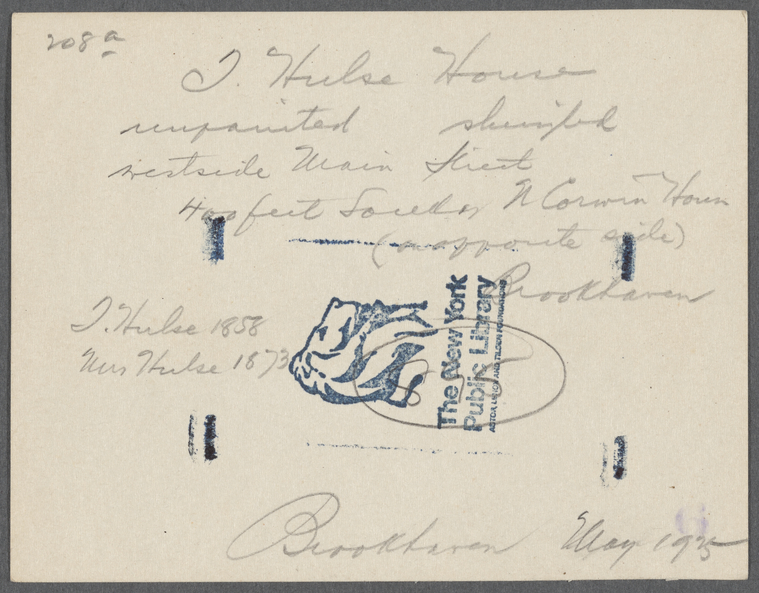 208a
J. Hulse House
unpainted shingled
westside Main Street
400 feet South of N Corwin House
(on opposite side)
Brookhaven
J. Hulse 1858
Mrs Hulse 1873
The New York
Public Library
ASTOR LENOX AND TILDEN FOUNDATIONS
Brookhaven May 1925